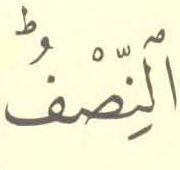 ٱلنِّصْفُ ؕ